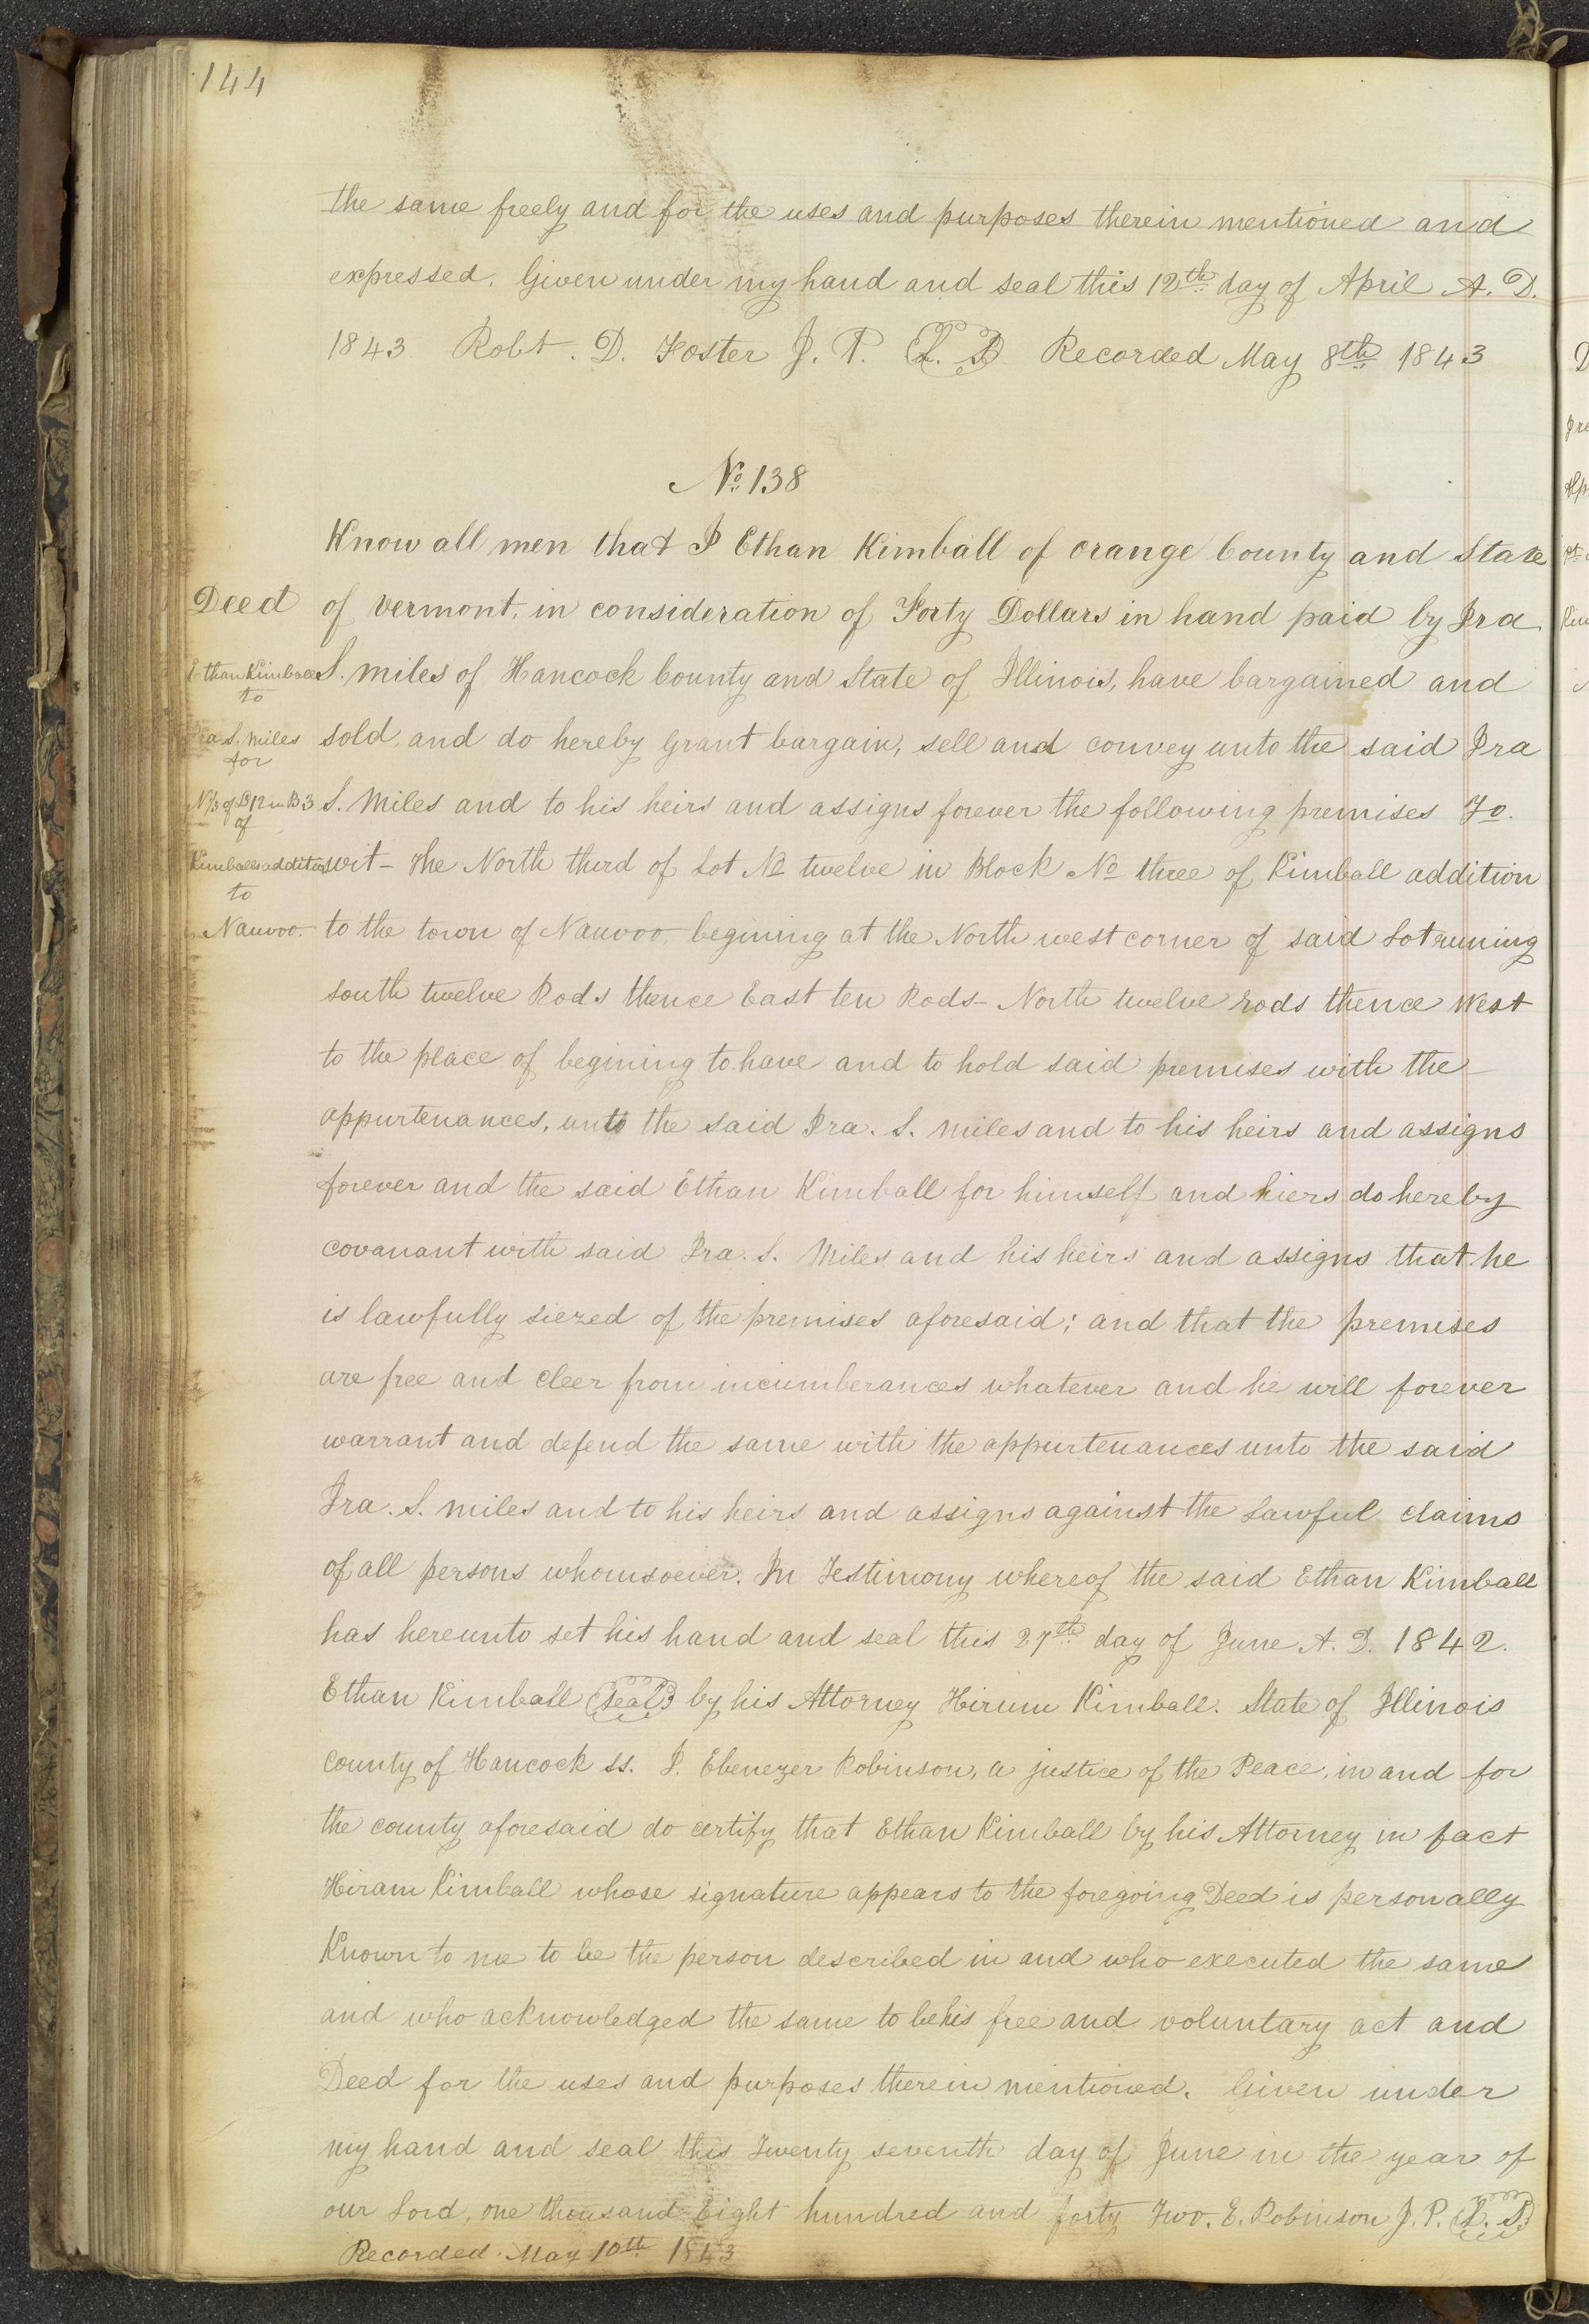 144
the same freely and for the uses and purposes therein mentioned and
expressed. Given under my hand and seal this 12th day of April A. D.
1843 Robt. D. Foster J. P. L. S. Recorded May 8th 1843
No 138
Know all men that I Ethan Kimball of orange County and State
Deed of vermont, in consideration of Forty Dollars in hand paid by Ira
Ethan Kimball S. miles of Hancock County and State of Illinois, have bargained and
to
Ira S. miles sold, and do hereby grant bargain, sell and convey unto the said Ira
for
N 1/3 of L 12 in B 3 S. Miles and to his heirs and assigns forever the following premises To.
of
Kimballs addition wit - The North third of Lot No twelve in Block No three of Kimball addition
to
Nauvoo. to the town of Nauvoo, begining at the North west corner of said Lot runing
south twelve Rods thence East ten Rods - North twelve rods thence West
to the place of begining to have and to hold said premises with the
appurtenances, unto the said Ira. S. miles and to his heirs and assigns
forever and the said Ethan Kimball for himself and hiers do hereby
covanant with said Ira. S. Miles and his heirs and assigns that he
is lawfully siezed of the premises aforesaid; and that the premises
are free and cleer from incumberances whatever and he will forever
warrant and defend the same with the appurtenances unto the said
Ira. S. miles and to his heirs and assigns against the Lawful claims
of all persons whomsoever. In Testimony whereof the said Ethan Kimball
has hereunto set his hand and seal this 27th day of June A. D. 1842.
Ethan Kimball seal by his Attorney Hirum Kimball. State of Illinois
County of Hancock ss. I. Ebenezer Robinson, a justice of the Peace, in and for
the county aforesaid do certify that Ethan Kimball by his Attorney in fact
Hiram Kimball whose signature appears to the foregoing Deed is personally
Known to me to be the person described in and who executed the same
and who acknowledged the same to be his free and voluntary act and
Deed for the uses and purposes therein mentioned. Given under
my hand and seal this Twenty seventh day of June in the year of
our Lord, one thousand Eight hundred and forty Two. E. Robinson J. P. L. S.
Recorded May 10th 1843